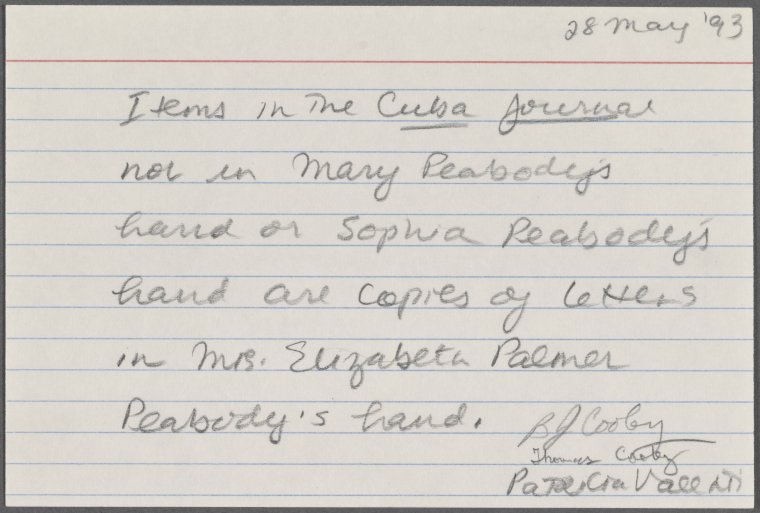 28 May '93
Items in the Cuba Journal
not in Mary Peabody's
hand or Sophia Peabody's
hand are copies of letters
in Mrs. Elizabeth Palmer
Peabody's hand.
BJ Cooby
Thomas Cooby
Patricia Valenti